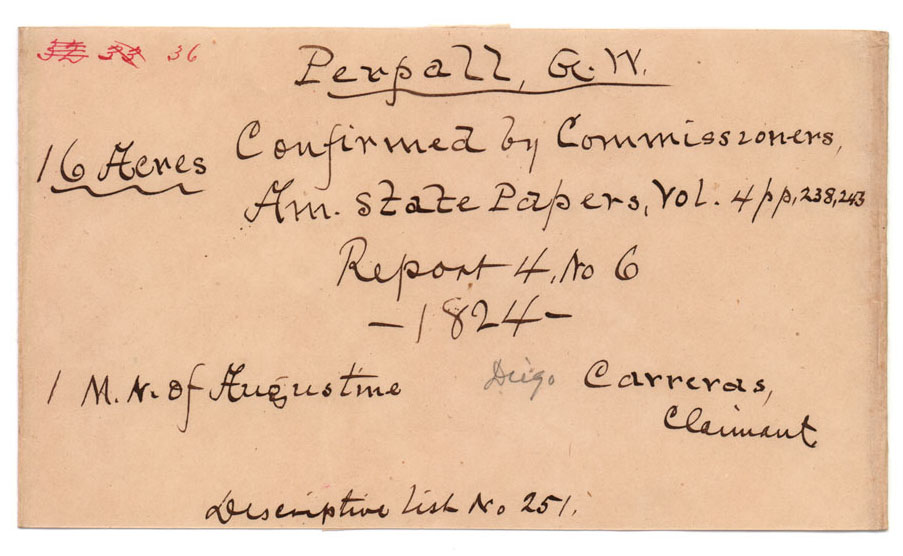 32 33 36
Perpall, G. W.
16 Acres Confirmed by Commissioners,
Am. State Papers, Vol. 4 pp, 238, 243
Report 4, No 6
- 1824 -
1 M. N. of Augustine Diego Carreras,
Claimant
Descriptive list No 251.